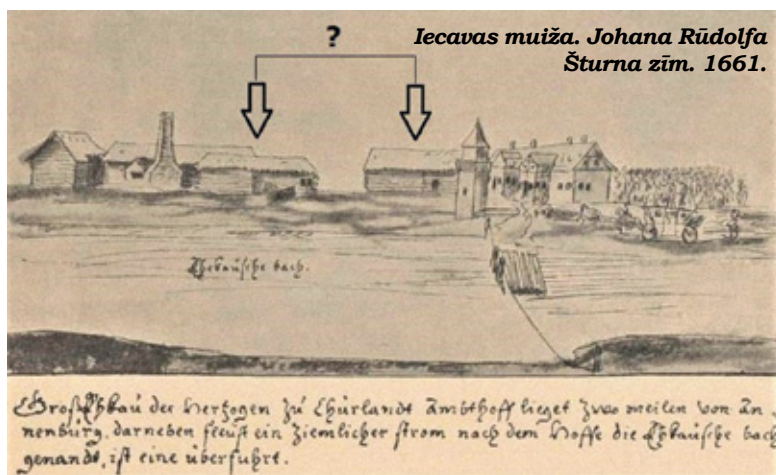 ?
Iecavas muiža. Johana Rūdolfa
Šturna zīm. 1661.
Ekkaüsche bach.
Groß Ekkaü der Hertzogen zü Chürlandt Ambthoff lieget zwo meilen von An
nenbürg, darneben fleüst ein ziemlicher strom nach dem Hoffe die Ekkaüsche bach
genandt, ist eine überfuhrt.